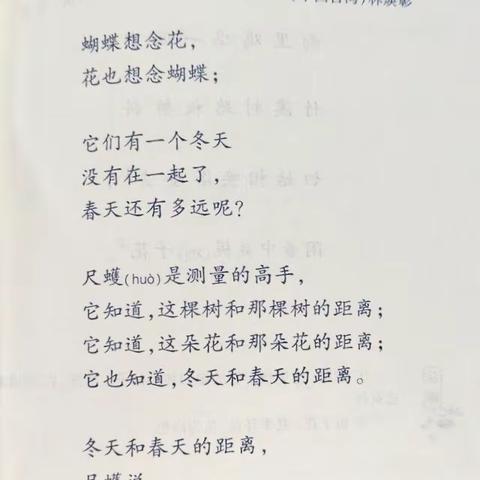 林焕彰
蝴蝶想念花，
花也想念蝴蝶；
它们有一个冬天
没有在一起了，
春天还有多远呢？
尺蠖(huò)是测量的高手，
它知道，这棵树和那棵树的距离；
它知道，这朵花和那朵花的距离；
它也知道，冬天和春天的距离。
冬天和春天的距离，
尺蠖说